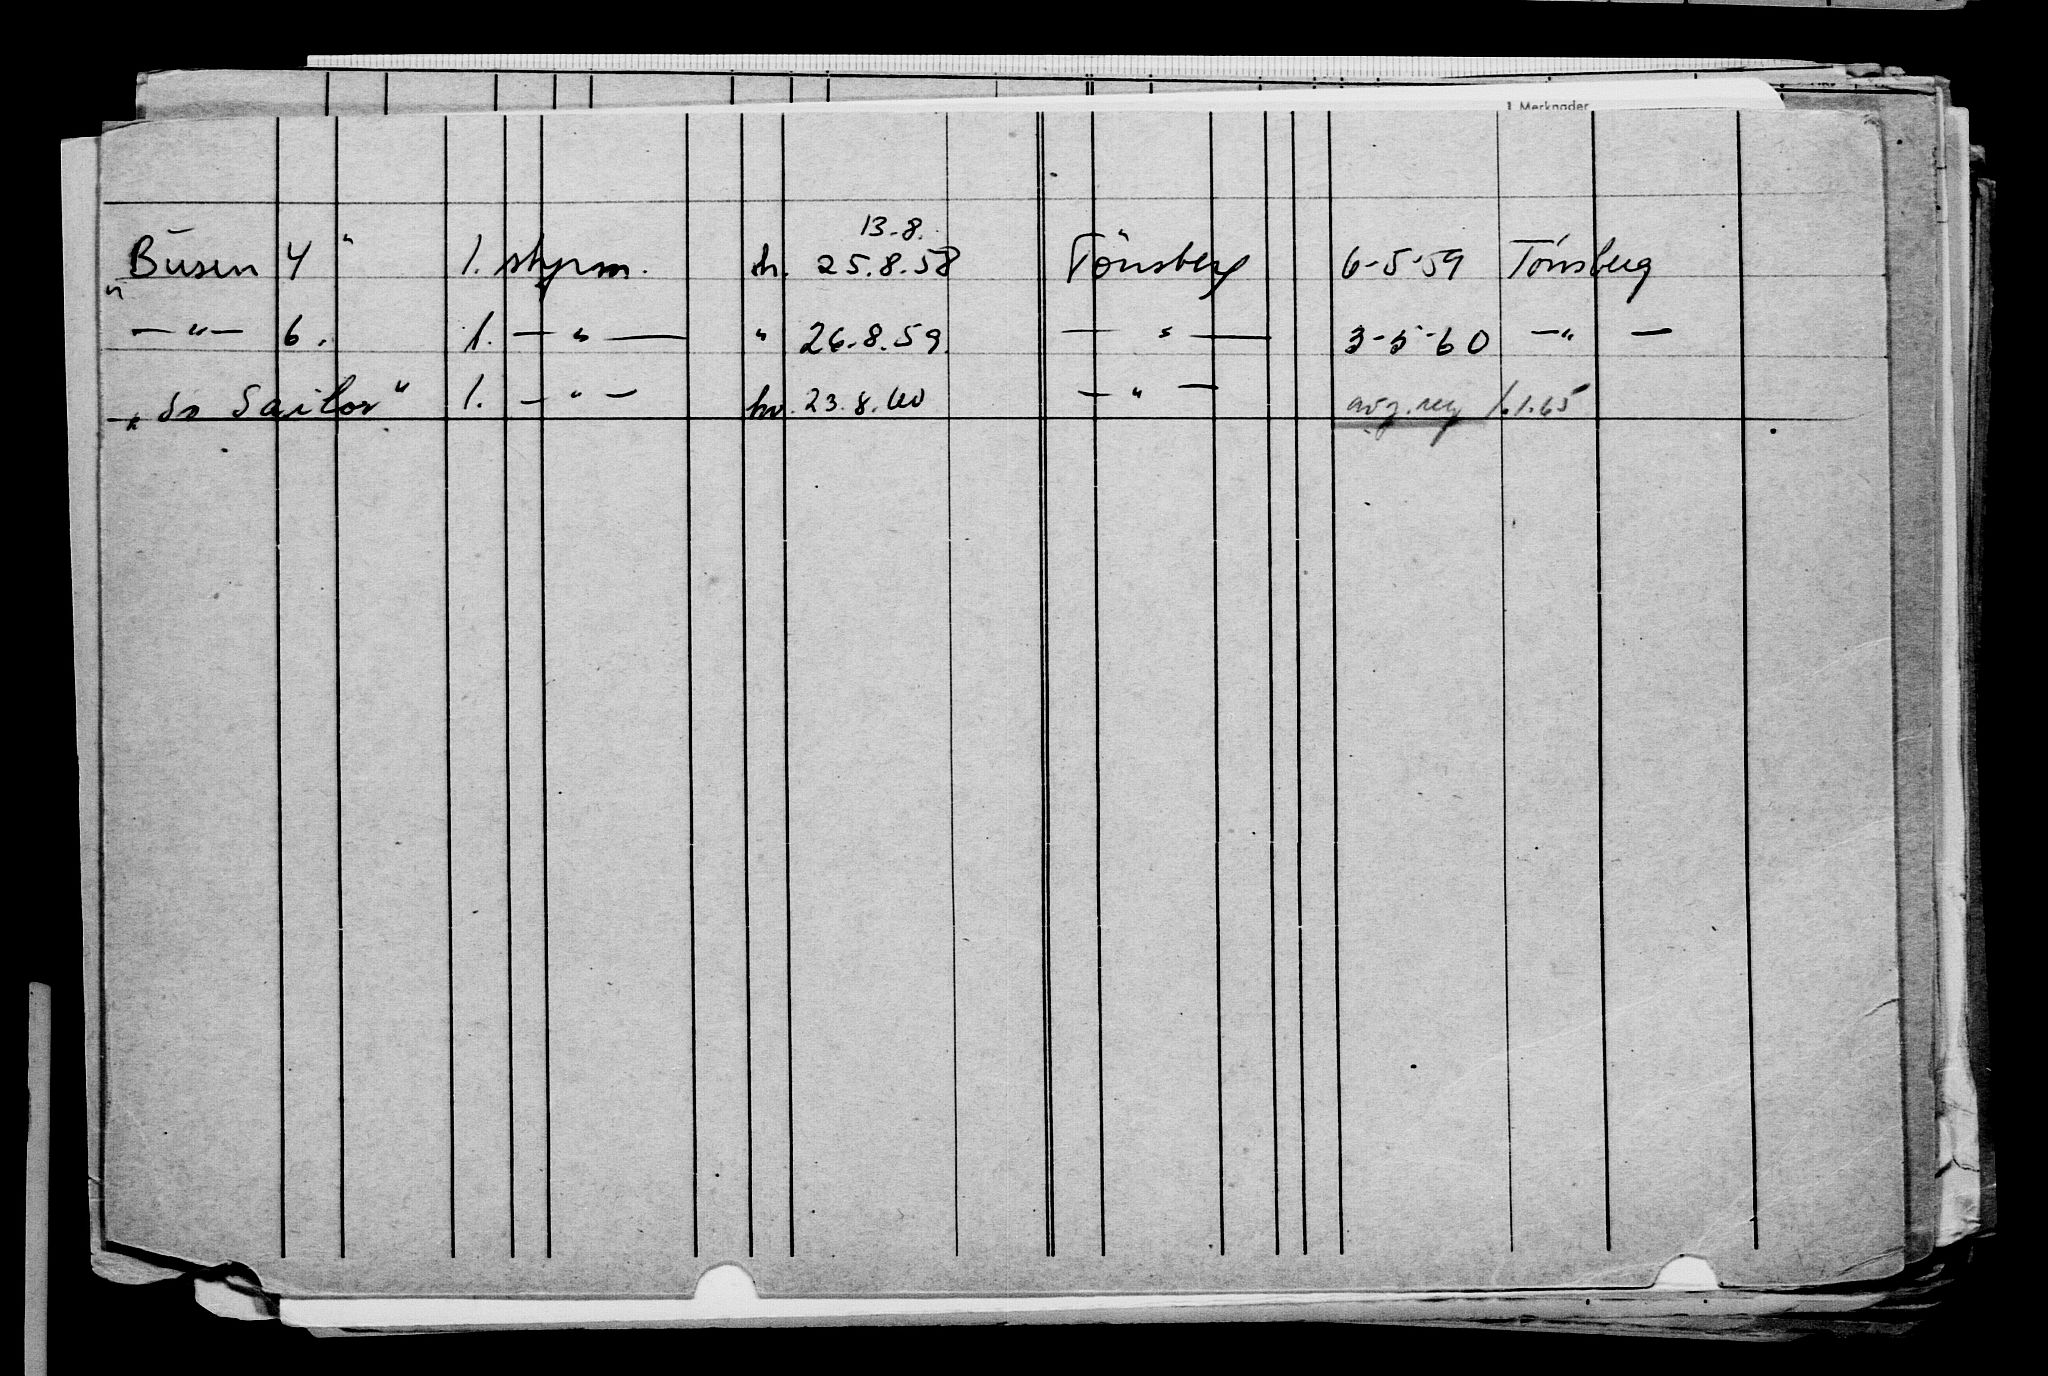 1 Merknader
13-8.
"Busen 4" 1. styrm. h. 25.8.58 Tönsberg 6-5-59 Tönsberg
—"— 6. 1. —"— " 26.8.59. —"— 3-5-60 —"—
"Ss Sailor" 1. —"— hv. 23.8.60 —"— avg. reg 1.1.65